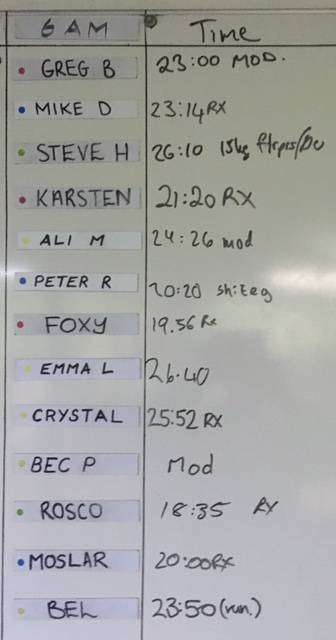 6 AM Time
GREG B 23:00 MOD.
MIKE D 23:14 RX
STEVE H 26:10 15kg
KARSTEN 21:20 RX
ALI M 24:26 mod
PETER R 20:20
FOXY 19.56 Rx
EMMA L 26.40
CRYSTAL 25:52 RX
BEC P Mod
ROSCO 18:35 RX
MOSLAR 20:00 RX
BEL 23:50 (run.)